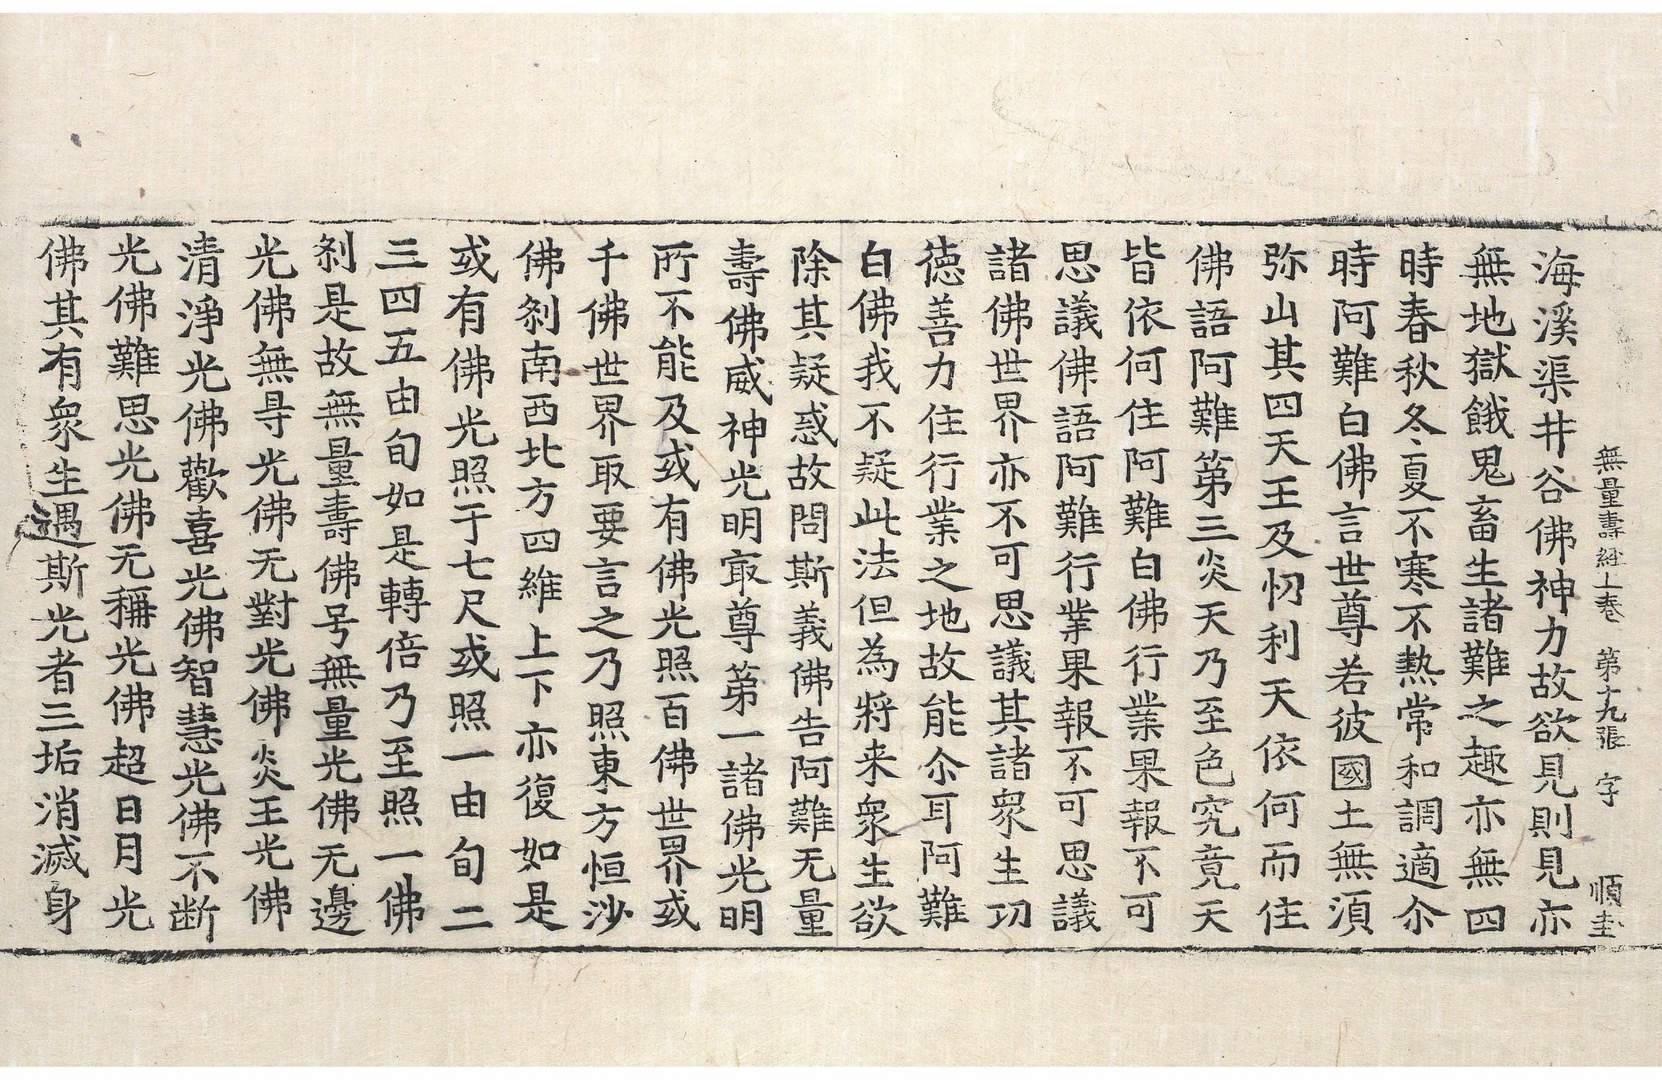 無量壽經上卷 第十九張 字 順圭
海溪渠井谷佛神力故欲見則見亦
無地獄餓鬼畜生諸難之趣亦無四
時春秋冬夏不寒不熱常和調適尒
時阿難白佛言世尊若彼國土無湏
弥山其四天王及忉利天依何而住
佛語阿難第三炎天乃至色究竟天
皆依何住阿難白佛行業果報不可
思議佛語阿難行業果報不可思議
諸佛世界亦不可思議其諸衆生功
德善力住行業之地故能尒耳阿難
白佛我不疑此法但為將来衆生欲
除其疑惑故問斯義佛告阿難无量
壽佛威神光明㝡尊第一諸佛光明
所不能及或有佛光照百佛世界或
千佛世界取要言之乃照東方恒沙
佛剎南西北方四維上下亦復如是
或有佛光照于七尺或照一由旬二
三四五由旬如是轉倍乃至照一佛
剎是故無量壽佛号無量光佛无邊
光佛無㝵光佛无對光佛炎王光佛
清淨光佛歡喜光佛智慧光佛不断
光佛難思光佛无稱光佛超日月光
佛其有衆生遇斯光者三垢消滅身